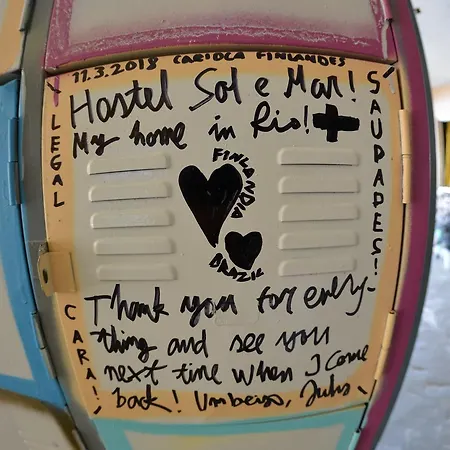 11.3.2018 CARIOCA FINLANDES
Hostel Sol e Mar!
My home in Rio! +
LEGAL
SAUDADES!
FINLANDIA
BRAZIL
CARA!
Thank you for every-
thing and see you
next time when I come
back! Um beijo, Juhs